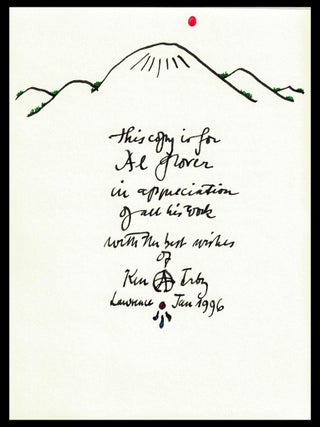 this copy is for
Al Glover
in appreciation
of all his work
with the best wishes
of
Ken A Irby
Lawrence Jan 1996